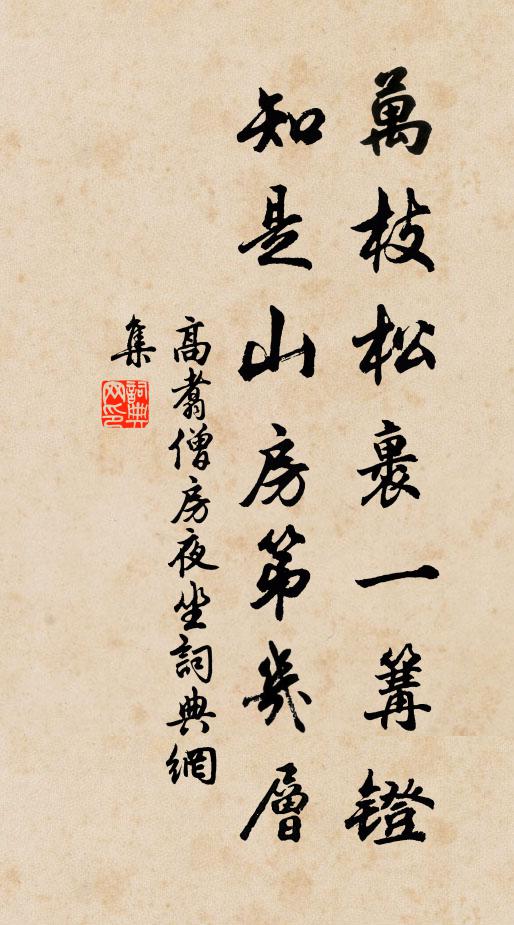 萬枝松裹一篝鐙
知是山房第幾層
高翥僧房夜坐詞典網
集
詞典网印